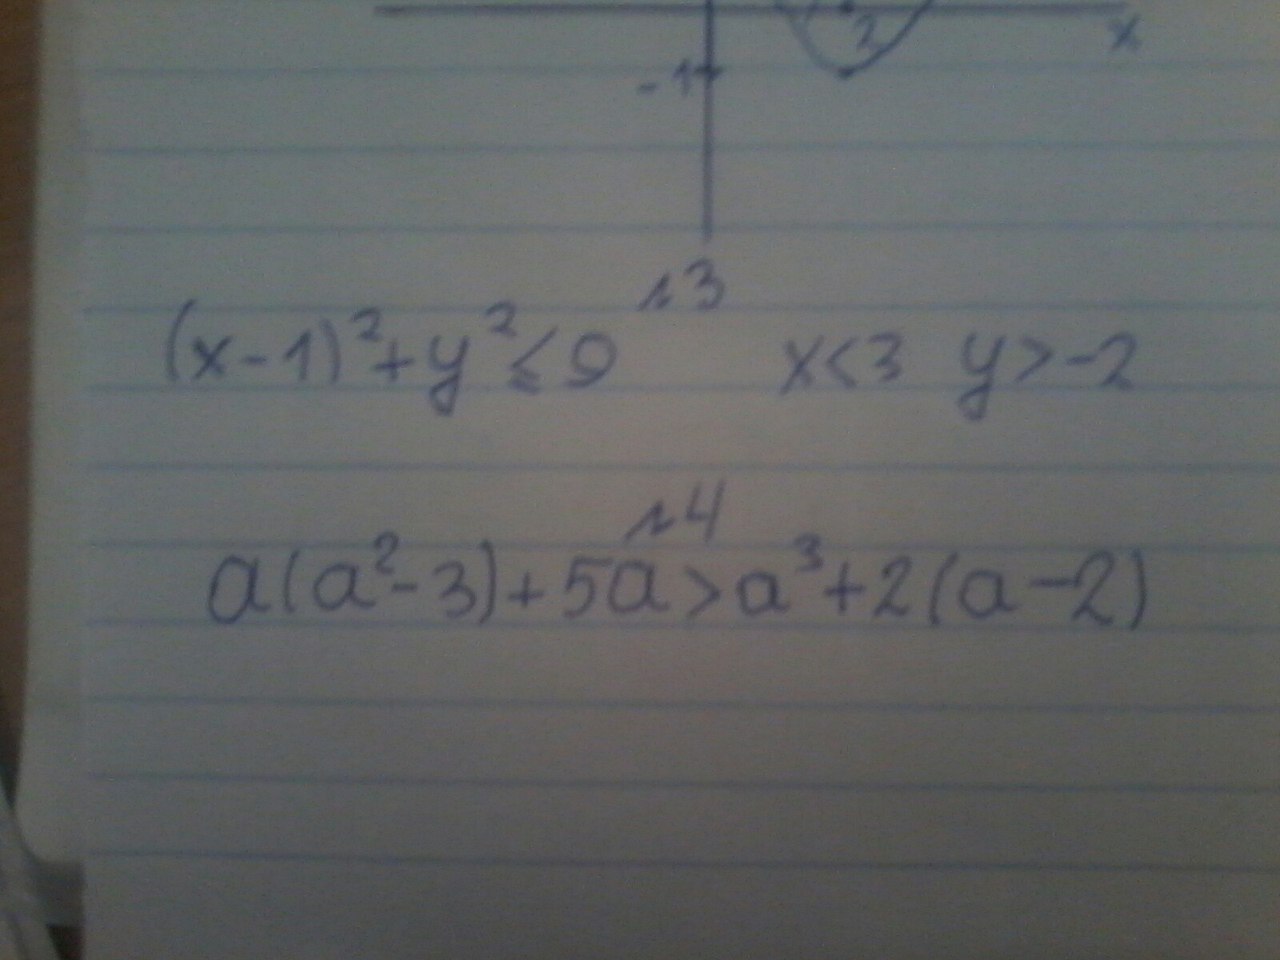 2 x
-1
№3
(x-1)²+y²≤9 x<3 y>-2
№4
a(a²-3)+5a>a³+2(a-2)